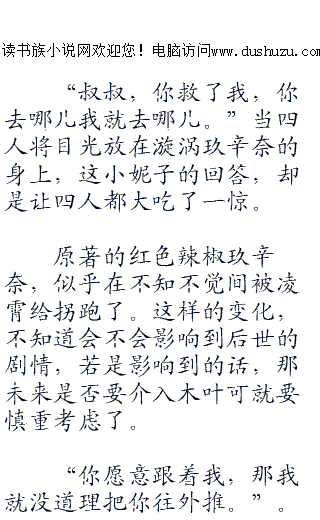 读书族小说网欢迎您！电脑访问www.dushuzu.com
“叔叔，你救了我，你
去哪儿我就去哪儿。”当四
人将目光放在漩涡玖辛奈的
身上，这小妮子的回答，却
是让四人都大吃了一惊。
原著的红色辣椒玖辛
奈，似乎在不知不觉间被凌
霄给拐跑了。这样的变化，
不知道会不会影响到后世的
剧情，若是影响到的话，那
未来是否要介入木叶可就要
慎重考虑了。
“你愿意跟着我，那我
就没道理把你往外推。”。